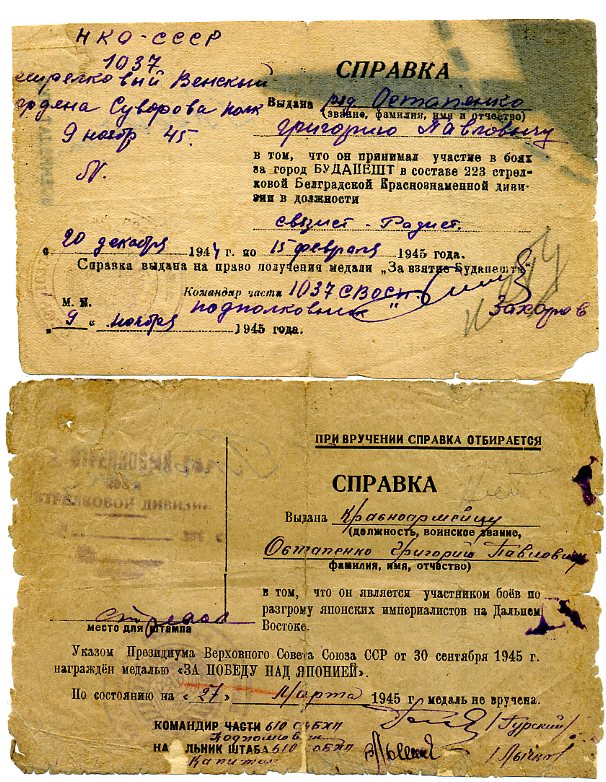 НКО-СССР
1037
стрелковый Венский
ордена Суворова полк
9 ноября 45.
№.
СПРАВКА
Выдана ряд. Остапенко
(звание, фамилия, имя и отчество)
Григорию Павловичу
в том, что он принимал участие в боях
за город БУДАПЕШТ в составе 223 стрел-
ковой Белградской Краснознаменной диви-
зии в должности
связист-Радист.
с 20 декабря 1944 г. по 15 февраля 1945 года.
Справка выдана на право получения медали „За взятие Будапешта“
Командир части 1037 СВОСП.
М. П. подполковник
„9“ ноября 1945 года.
Захаров
ПРИ ВРУЧЕНИИ СПРАВКА ОТБИРАЕТСЯ
СПРАВКА
Выдана Красноармейцу
(должность, воинское звание,
Остапенко Григорий Павлович
фамилия, имя, отчество)
в том, что он является участником боёв по
разгрому японских империалистов на Дальнем
Востоке.
место для штампа
Указом Президиума Верховного Совета Союза ССР от 30 сентября 1945 г.
награждён медалью «ЗА ПОБЕДУ НАД ЯПОНИЕЙ».
По состоянию на «27» Марта 1945 г. медаль не вручена.
КОМАНДИР ЧАСТИ 610 ОБХП
Подполковник /Гурский/
НАЧАЛЬНИК ШТАБА 610 ОБХП
Капитан